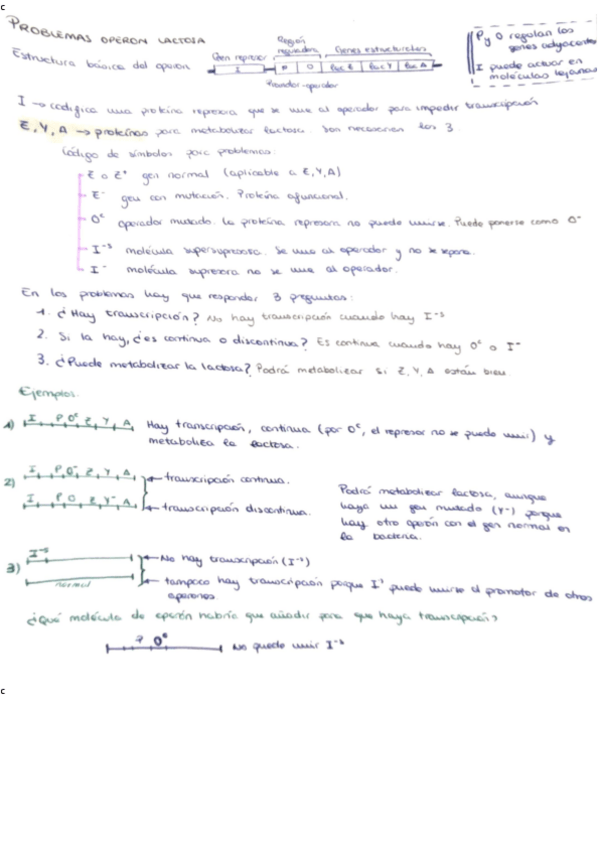 c
PROBLEMAS OPERON LACTOSA
Estructura básica del operon
Gen represor
Región reguladora
Genes estructurales
I P O Lac Z Lac Y Lac A
Promotor-operador
P y O regulan los
genes adyacentes
I puede actuar en
moléculas lejanas
I → codifica una proteína represora que se une al operador para impedir transcripción
Z, Y, A → proteínas para metabolizar lactosa. Son necesarias las 3.
Código de símbolos para problemas:
Z o Z⁺ gen normal (aplicable a Z, Y, A)
Z⁻ gen con mutación. Proteína afuncional.
Oᶜ operador mutado. La proteína represora no puede unirse. Puede ponerse como O⁻
I⁻ˢ molécula supersupresora. Se une al operador y no se separa.
I⁻ molécula supresora no se une al operador.
En los problemas hay que responder 3 preguntas:
1. ¿Hay transcripción? No hay transcripción cuando hay I⁻ˢ
2. Si la hay, ¿es continua o discontinua? Es continua cuando hay Oᶜ o I⁻
3. ¿Puede metabolizar la lactosa? Podrá metabolizar si Z, Y, A están bien.
Ejemplos:
1) I P Oᶜ Z Y A Hay transcripción, continua (por Oᶜ, el represor no se puede unir) y
metaboliza la lactosa.
2) I P O⁻ Z Y A ← transcripción continua.
I P O Z Y⁻ A ← transcripción discontinua.
Podrá metabolizar lactosa, aunque
haya un gen mutado (Y⁻) porque
hay otro operón con el gen normal en
la bacteria.
3) I⁻ˢ ← No hay transcripción (I⁻ˢ)
normal ← tampoco hay transcripción porque Iˢ puede unirse al promotor de otros
operones.
¿Qué molécula de operón habría que añadir para que haya transcripción?
P Oᶜ No puede unir I⁻ˢ
c